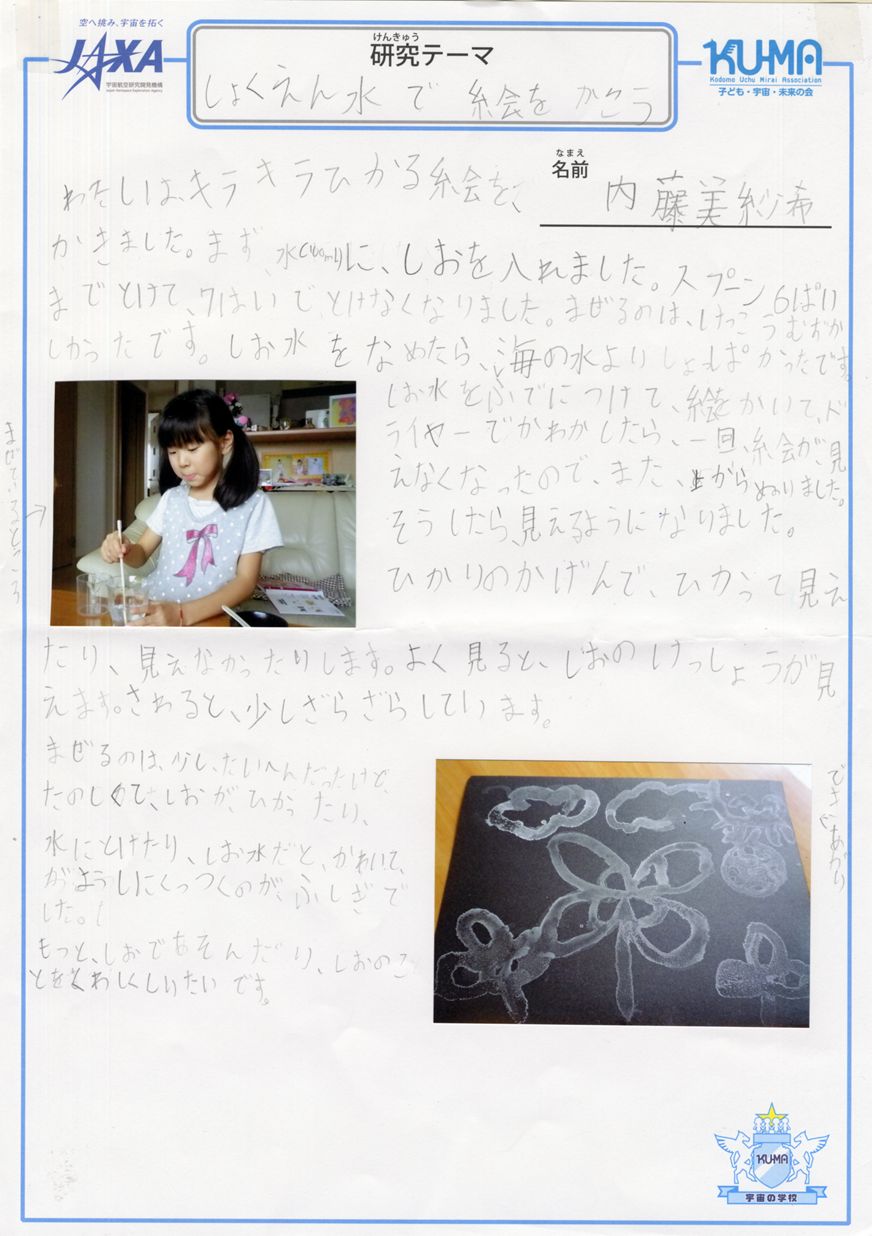 空へ挑み、宇宙を拓く
JAXA
宇宙航空研究開発機構
Japan Aerospace Exploration Agency
けんきゅう
研究テーマ
しょくえん水で 絵を かこう
KU-MA
Kodomo Uchu Mirai Association
子ども・宇宙・未来の会
なまえ
名前
内藤美紗希
わたしは、キラキラひかる絵を、
かきました。まず、水に、しおを入れました。スプーン6ぱい
までとけて、7はいでとけなくなりました。まぜるのは、けっこうむずか
しかったです。しお水をなめたら、海の水よりしょっぱかったです。
しお水をふでにつけて、絵をかいて、ド
ライヤーでかわかしたら、一回、絵が、見
えなくなったので、また、上からぬりました。
そうしたら、見えるようになりました。
ひかりのかげんで、ひかって見え
たり、見えなかったりします。よく見ると、しおのけっしょうが見
えます。さわると、少しざらざらしています。
まぜているところ
まぜるのは、少し、たいへんだったけど、
たのしくて、しおが、ひかったり、
水にとけたり、しお水だと、かわいて、
がようしにくっつくのが、ふしぎで
した。
もっと、しおであそんだり、しおのこ
とをくわしくしりたいです。
できあがり
KU-MA
宇宙の学校